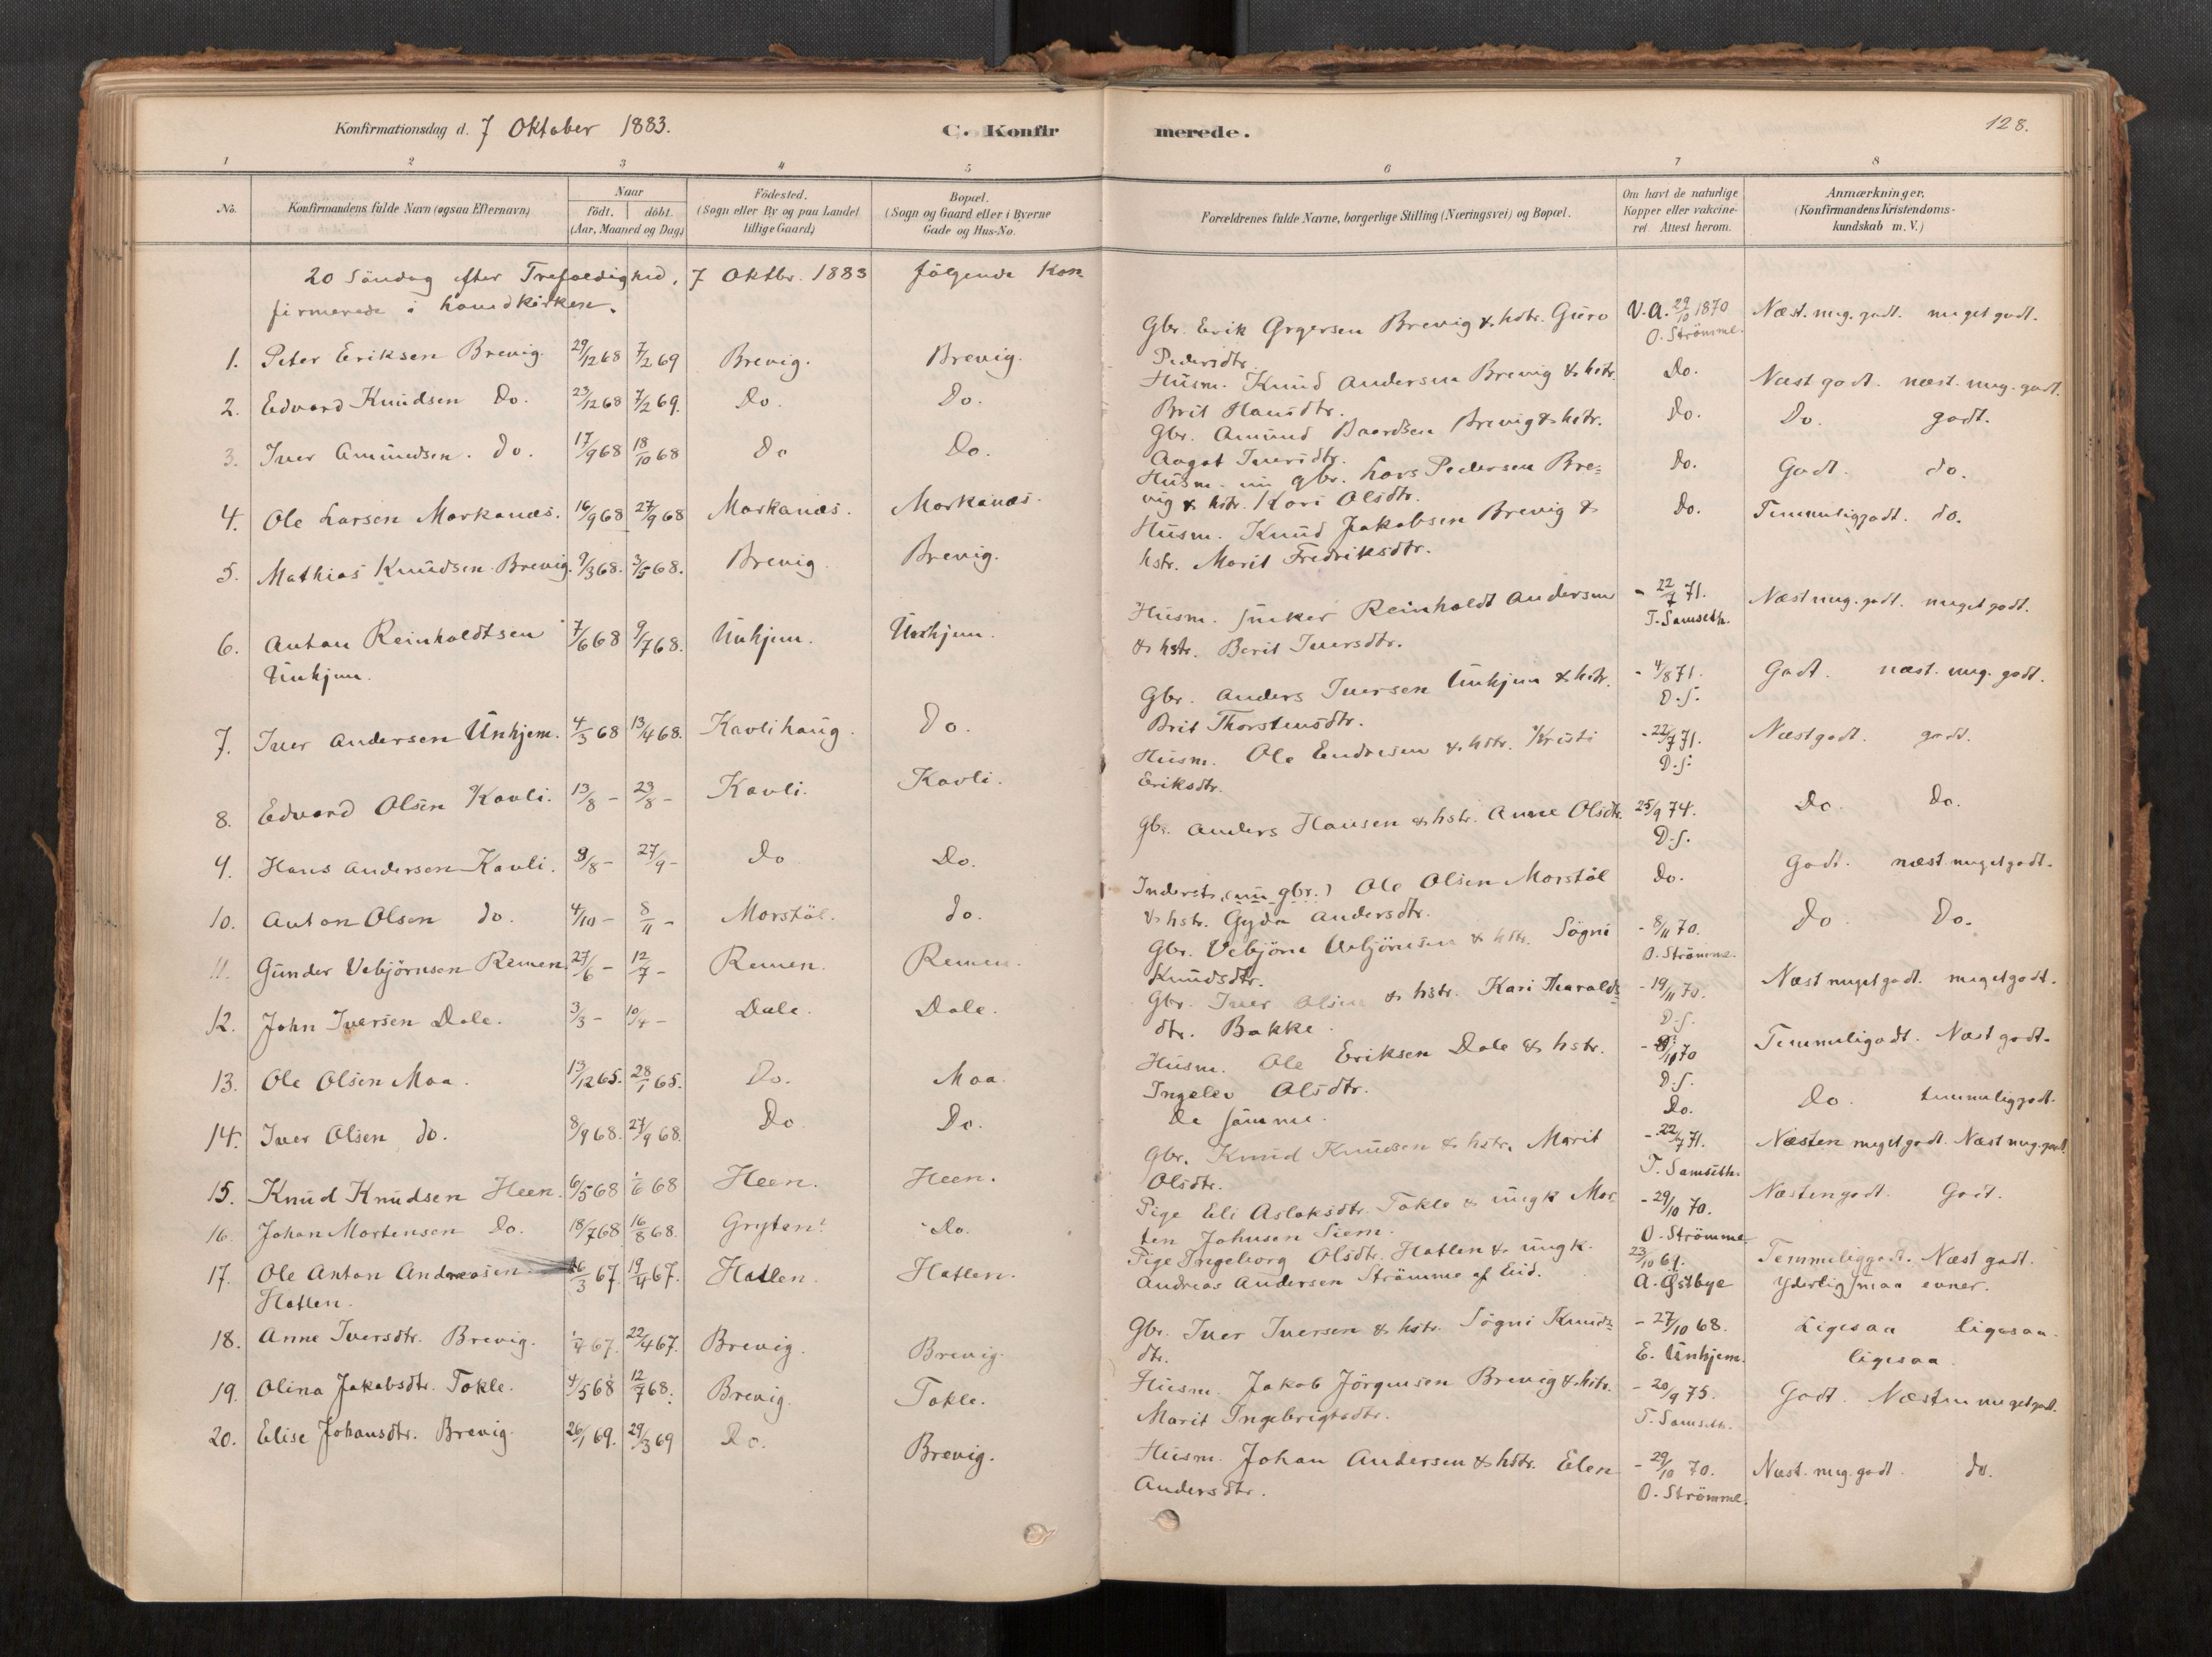 Konfirmationsdag d. 7 Oktober 1883.
C. Konfirmerede.
128.
1 2 3 4 5 6 7 8
No.
Konfirmandens fulde Navn (ogsaa Efternavn)
Naar
födt. döbt.
(Aar, Maaned og Dag)
Födested.
(Sogn eller By og paa Landet
tillige Gaard)
Bopæl.
(Sogn og Gaard eller i Byerne
Gade og Hus-No.
Forældrenes fulde Navne, borgerlige Stilling (Næringsvei) og Bopæl.
Om havt de naturlige
Kopper eller vakcine-
ret. Attest herom.
Anmærkninger.
(Konfirmandens Kristendoms-
kundskab m. V.)
20 Söndag efter Trefoldighed, 7 Oktbr. 1883 følgende Kon-
firmerede i
1. Peter Eriksen Brevig. 29/12 68 7/2 69 Brevig. Brevig.
2. Edvard Knudsen Do. 23/12 68 7/2 69. Do. Do.
3. Iver Amundsen. do. 17/9 68 18/10 68 Do Do.
4. Ole Larsen Morkanæs. 16/9 68 27/9 68 Morkanæs. Morkanæs.
5. Mathias Knudsen Brevig. 9/3 68. 3/5 68. Brevig. Brevig.
6. Anton Reinholdtsen 7/6 68 9/7 68. Unhjem. Unhjem.
Unhjem.
7. Iver Andersen Unhjem. 4/3 68 13/4 68. Kavlihaug. Do.
8. Edvard Olsen Kavli. 13/8 - 23/8 - Kavli. Kavli.
9. Hans Andersen Kavli. 9/8 - 27/9 - Do Do.
10. Anton Olsen do. 4/10 - 8/11 - Morstöl. do.
11. Gunder Vebjörnsen Remen. 27/6 - 12/7 - Remen. Remen.
12. John Iversen Dale. 3/3 - 10/4 - Dale. Dale.
13. Ole Olsen Moa. 13/12 65. 28/1 65. Do. Moa.
14. Iver Olsen do. 8/9 68. 27/9 68. Do Do.
15. Knud Knudsen Heen. 6/5 68 1/6 68 Heen. Heen.
16. Johan Mortensen Do. 18/7 68 16/8 68. Gryten. Do.
17. Ole Anton Andreasen 26/3 67. 19/4 67. Hatlen. Hatlen.
Hatlen.
18. Anne Iversdtr. Brevig. 1/4 67. 22/4 67. Brevig. Brevig.
19. Olina Jakobsdtr. Tokle. 4/5 68 12/7 68. Brevig. Tokle.
20. Elise Johansdtr. Brevig. 26/1 69. 29/3 69 Do. Brevig.
Gbr. Erik Brevig & hstr. Guro V.A. 29/10 1870 Næst. meg. godt. meget godt.
Pedersdtr. O. Strömme.
Husm. Knud Andersen Brevig & hstr. Do. Næst godt. næst. meg. godt.
Brit Hansdtr.
Gbr. Amund Baardsen Brevig & hstr. Do. Do. godt.
Aagot Iversdtr.
Husm. nu gbr. Lars Pedersen Bre= Do. Godt. do.
vig & hstr. Kari Olsdtr.
Husm. Knud Jakobsen Brevig & Do. Temmeliggodt. do.
hstr. Marit Fredriksdtr.
Husm. Reinholdt Andersen - 22/7 71. Næst meg. godt. meget godt.
& hstr. Berit Iversdtr. T. Samseth.
Gbr. Anders Iversen Unhjem & hstr. - 4/8 71. Godt. næst. meg. godt.
Brit Thorstensdtr. D.S.
Husm. Ole Endresen & hstr. Kristi - 22/7 71. Næst godt. godt.
Eriksdtr. D.S.
Gbr. Anders Hansen & hstr. Anne Olsdtr. 25/9 74. Do. Do.
D.S.
Inderst. (nu gbr.) Ole Olsen Morstöl Do. Godt. næst meget godt.
& hstr. Gyda Andersdtr.
Gbr. Vebjörn Vebjörnsen & hstr. Sögni - 8/11 70. Do Do.
Knudsdtr. O. Strömme.
Gbr. Iver Olsen & hstr. Kari Tharalds= - 19/11 70. Næst meget godt. meget godt.
dtr. Bakke. D.S.
Husm. Ole Eriksen Dale & hstr. 70 Temmeligodt. Næst godt.
Ingelev Olsdtr. D.S.
De samme. Do. Do. temmeliggodt.
Gbr. Knud Knudsen & hstr. Marit - 22/7 71. Næsten meget godt. Næst meg. godt.
Olsdtr. T. Samseth.
Pige Eli Aslaksdtr. Tokle & ungk. Mor- - 29/10 70. Næsten godt. Godt.
ten Johnsen Siem. O. Strömme
Pige Ingeborg Olsdtr. Hatlen & ungk. 23/10 69. Temmeliggodt. Næst godt.
Andreas Andersen Strömme af Eid. A. Østbye Yderlig smaa evner.
Gbr. Iver Iversen & hstr. Sögni Knuds= - 27/10 68. Ligesaa Ligesaa.
dtr. E. Unhjem. ligesaa.
Husm. Jakob Jörgensen Brevig & hstr. - 20/9 75. Godt. Næsten meget godt.
Marit Ingebrigtsdtr. T. Samseth.
Husm. Johan Andersen & hstr. Elen - 29/10 70. Næst. meg. godt. do.
Andersdtr. O. Strömme.